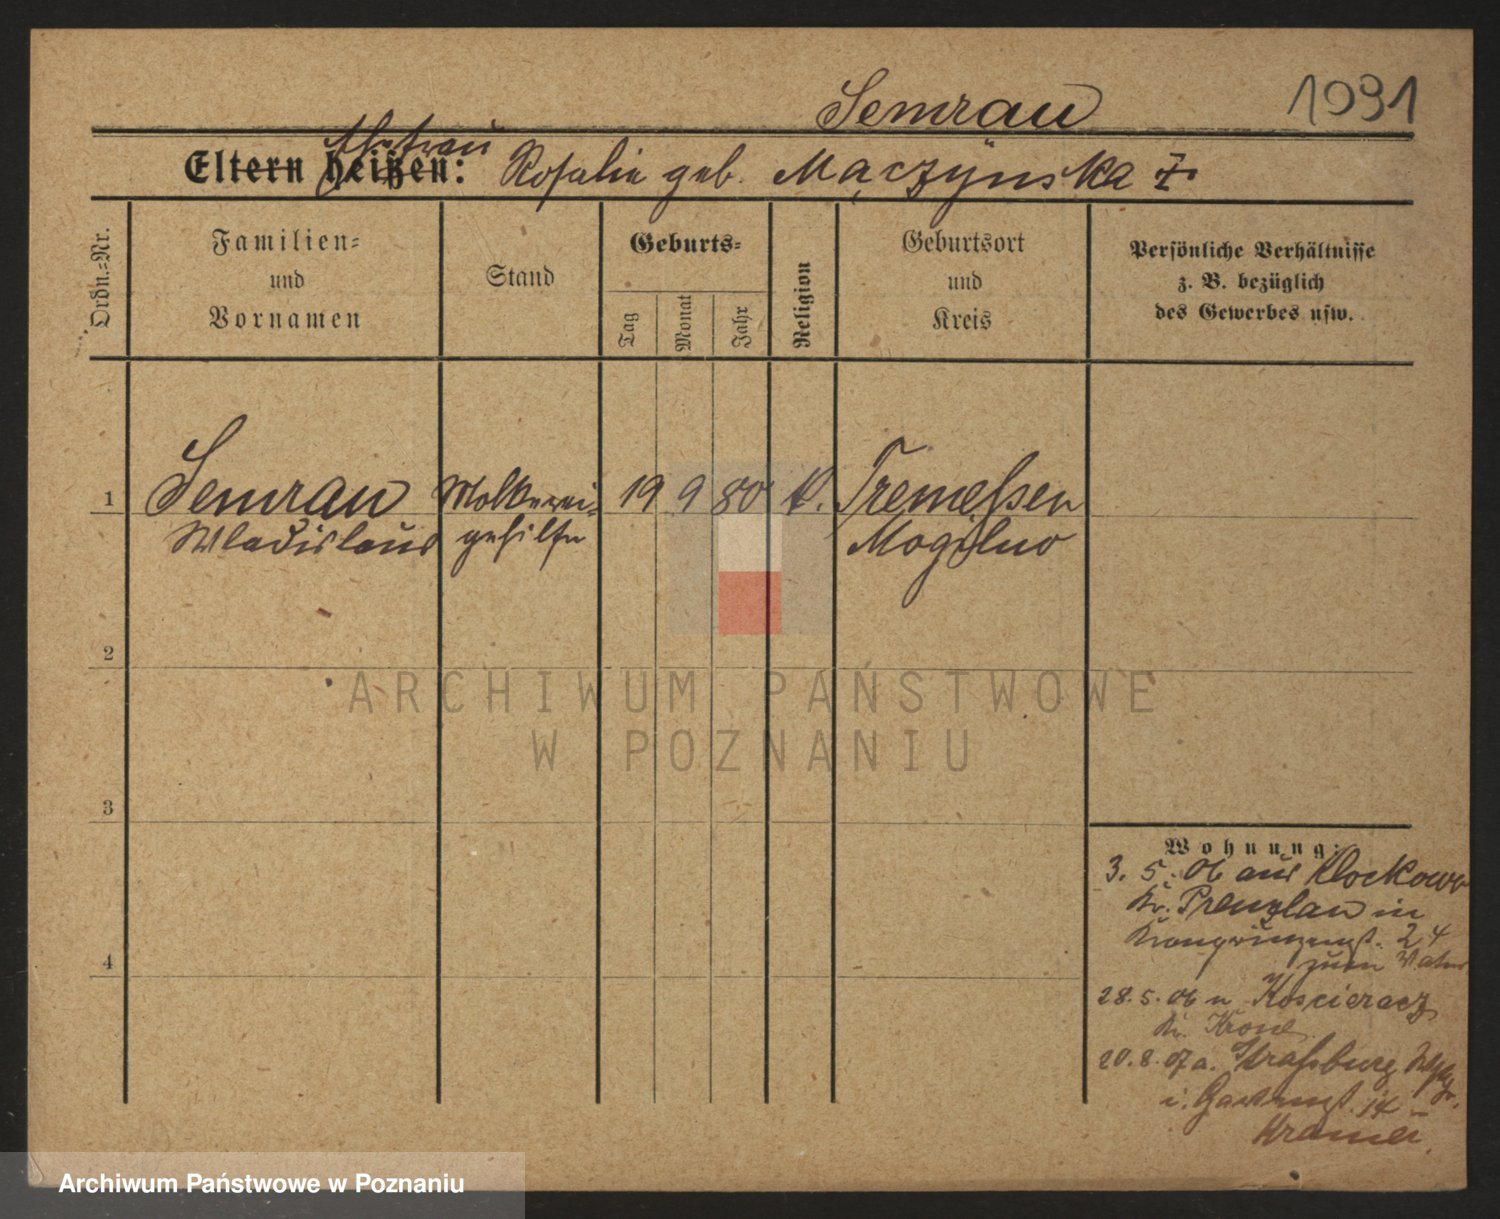 Semrau
1091
Ehefrau
Eltern heißen: Rosalie geb. Mączyńska
Ordn.-Nr.
Familien-
und
Vornamen
Stand
Geburts-
Tag
Monat
Jahr
Religion
Geburtsort
und
Kreis
Persönliche Verhältnisse
z. B. bezüglich
des Gewerbes usw.
1 Semrau Molkerei- 19 9 80 k. Tremessen
Wladislaus gehilfe Mogilno
2
3
4
Wohnung:
3. 5. 06 aus Klockow
Kr. Prenzlau in
Kronprinzenst. 24
zum Vater
28. 5. 06 n Koscieracz
Kr. Krone
20. 8. 07 a. Straßburg
i. Gartenst. 14
Kramer
ARCHIWUM PAŃSTWOWE
W POZNANIU
Archiwum Państwowe w Poznaniu